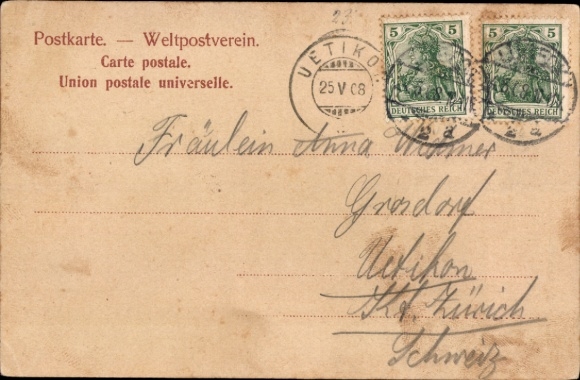 23
Postkarte. — Weltpostverein.
Carte postale.
Union postale universelle.
UETIKON
25 V 08
5 5
DEUTSCHES REICH
2 a
5 5
DEUTSCHES REICH
2 a
Fräulein Anna
Grosdorf
Uetikon
Kt. Zürich
Schweiz